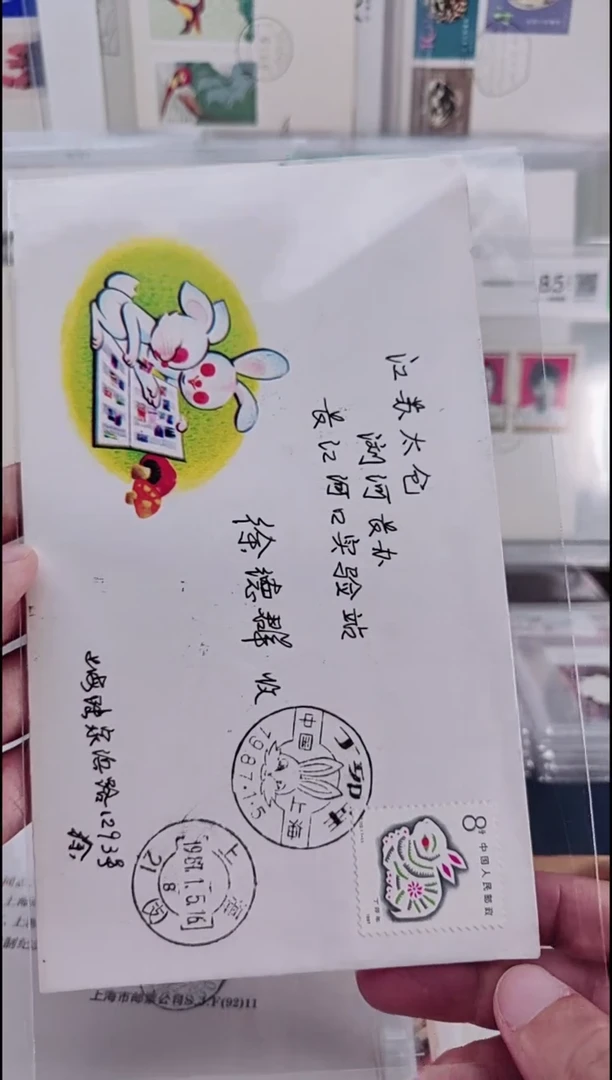 江苏太仓
浏河长办
长江河口实验站
徐德群 收
1293号
丁卯年
中国
上海
1987.1.5
上海
1987.1.5.16
21
8
8分
中国人民邮政
丁卯年
85
上海市邮票公司S.J.F(92)11